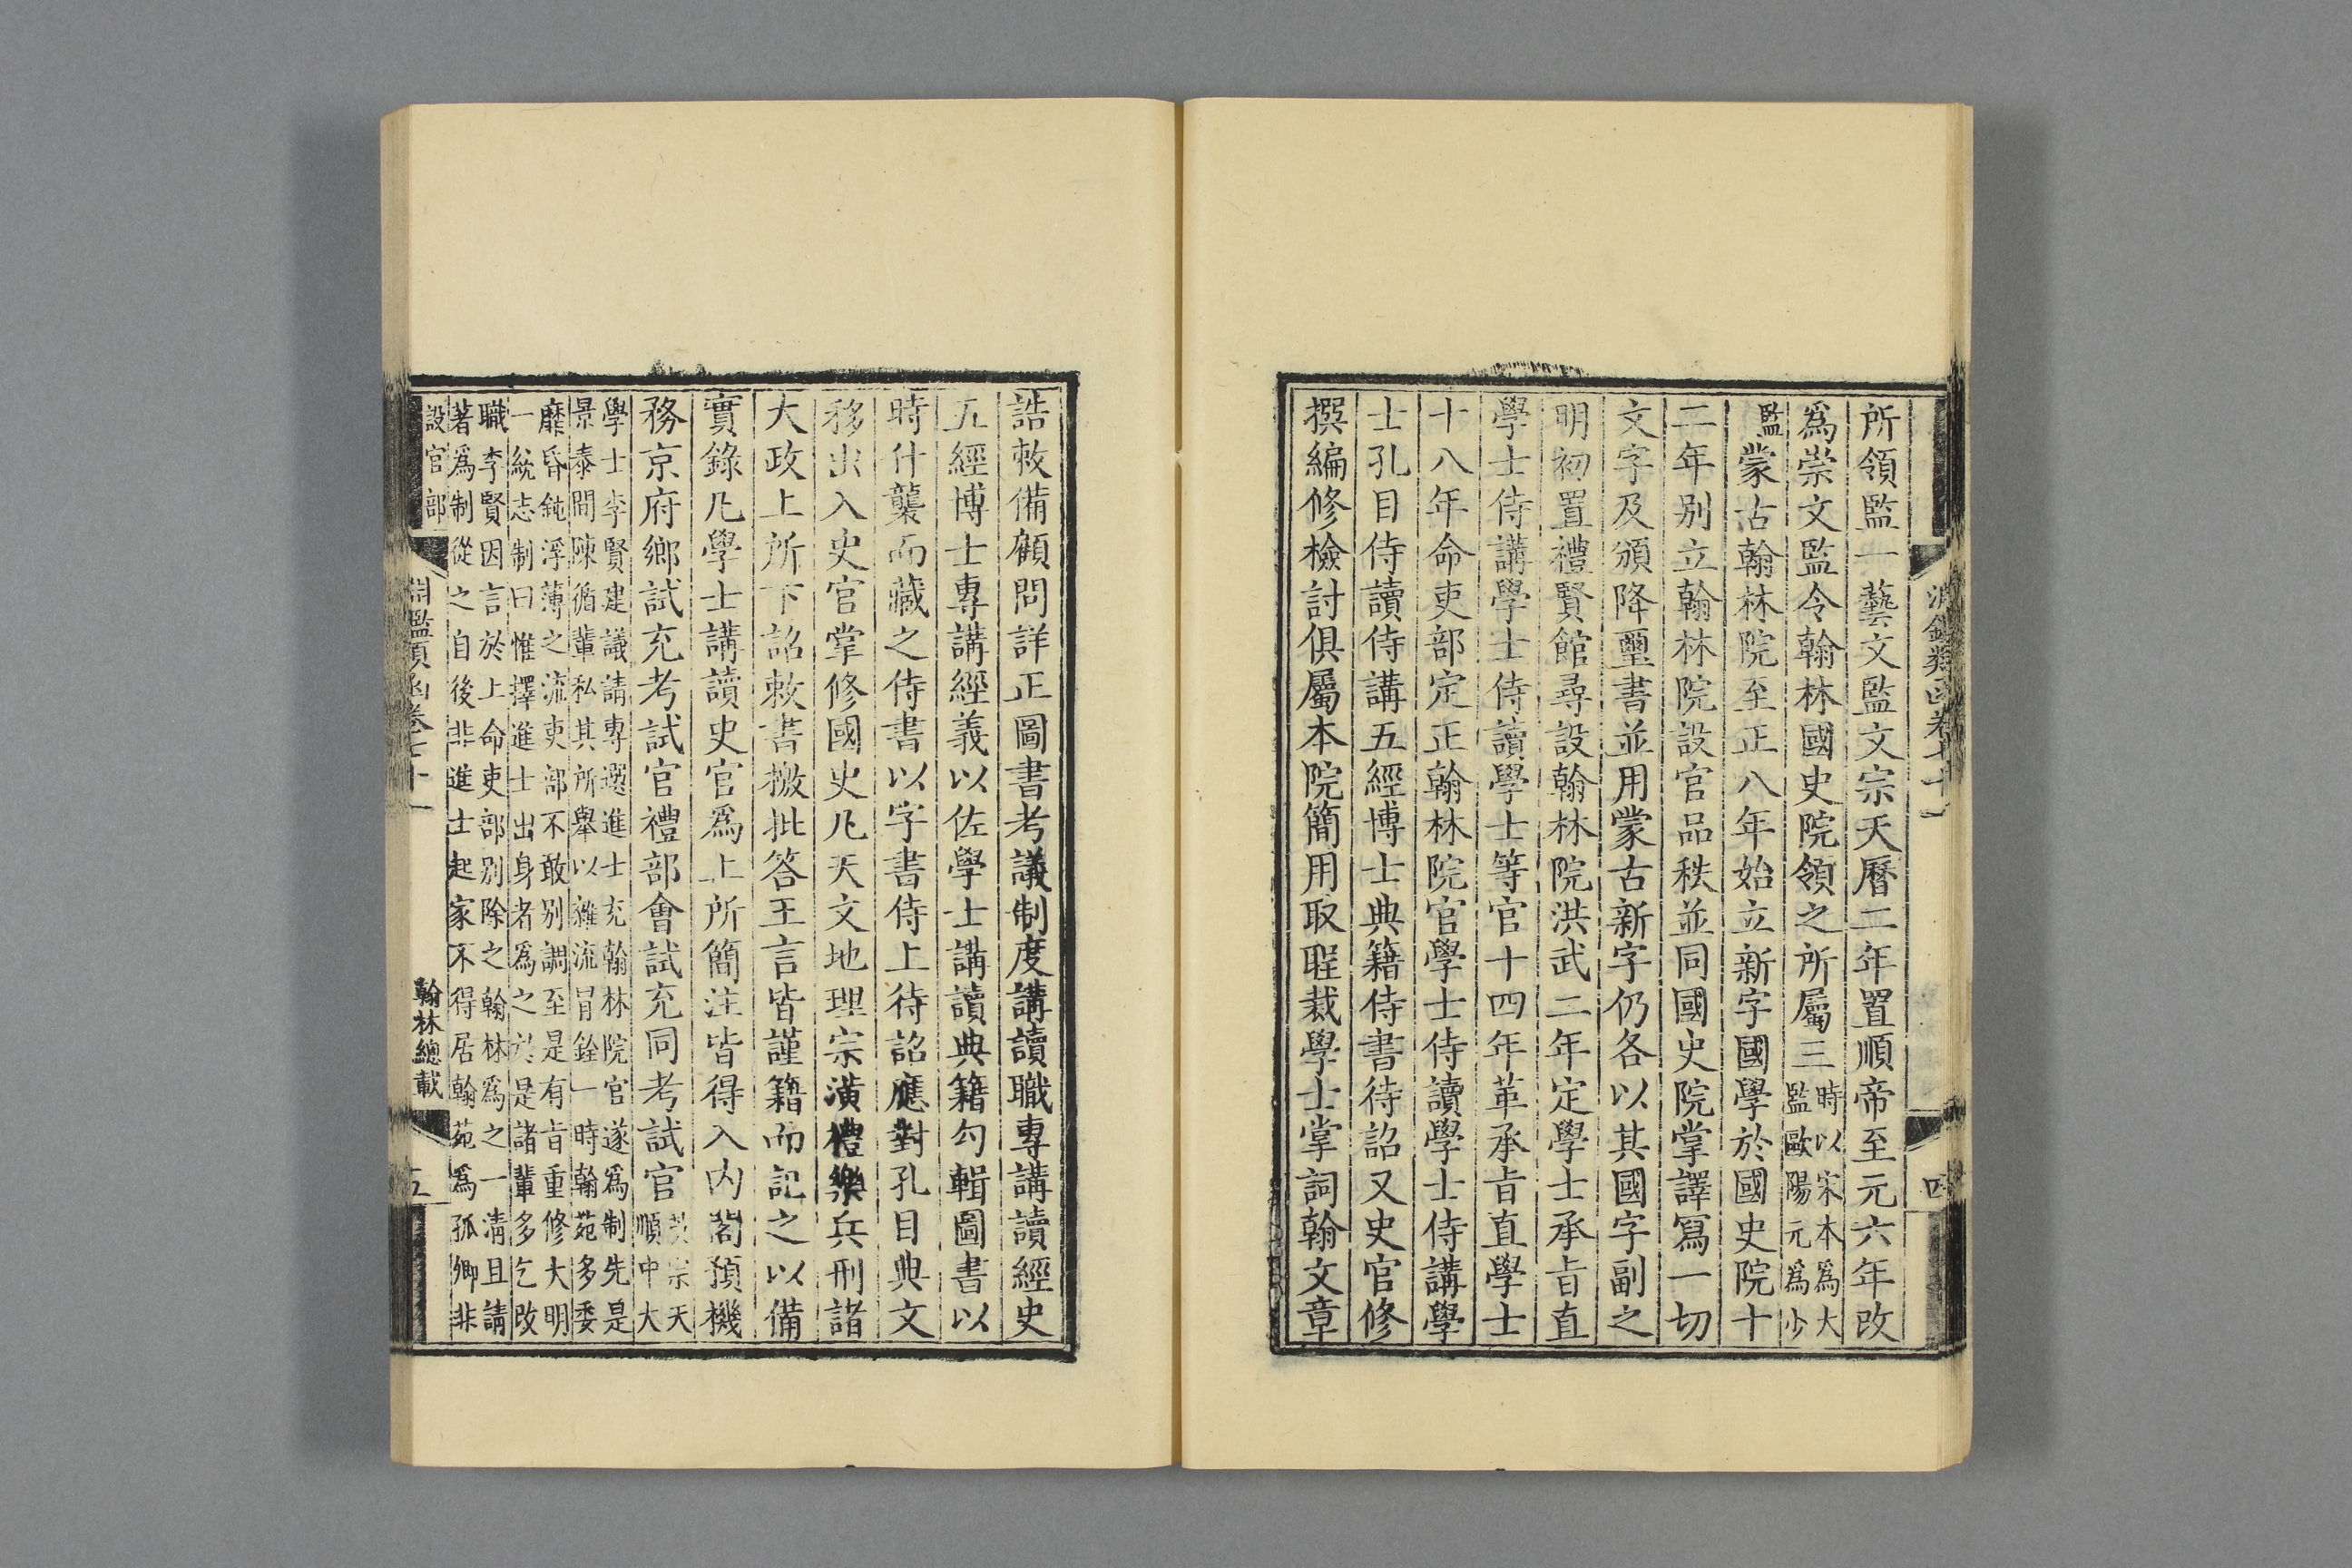 所領監一藝文監文宗天曆二年置順帝至元六年改
爲崇文監令翰林國史院領之所屬三時以宋本爲大監歐陽元爲少
監蒙古翰林院至正八年始立新字國學於國史院十
二年别立翰林院設官品秩並同國史院掌譯寫一切
文字及頒降璽書並用蒙古新字仍各以其國字副之
明初置禮賢館尋設翰林院洪武二年定學士承旨直
學士侍講學士侍讀學士等官十四年革承旨直學士
十八年命吏部定正翰林院官學士侍讀學士侍講學
士孔目侍讀侍講五經博士典籍侍書待詔又史官修
撰編修檢討俱屬本院簡用取裁學士掌詞翰文章
淵鑑類函卷七十一
四
誥敕備顧問詳正圖書考議制度講讀職專講讀經史
五經博士專講經義以佐學士講讀典籍勾輯圖書以
時什襲而藏之侍書以字書侍上待詔應對孔目典文
移出入史官掌修國史凡天文地理宗潢禮樂兵刑諸
大政上所下詔敕書檄批答王言皆謹籍而記之以備
實錄凡學士講讀史官爲上所簡注皆得入内閣預機
務京府鄉試充考試官禮部會試充同考試官英宗天順中大
學士李賢建議請專選進士充翰林院官遂爲制先是
景泰間陳循輩私其所舉以雜流冒銓一時翰苑多委
靡昏鈍浮薄之流吏部不敢别調至是有旨重修大明
一統志制曰惟擇進士出身者爲之於是諸輩多乞改
職李賢因言於上命吏部别除之翰林爲之一清且請
著爲制從之自後非進士起家不得居翰苑爲孤卿非
淵鑑類函卷七十一
設官部
翰林總載
五